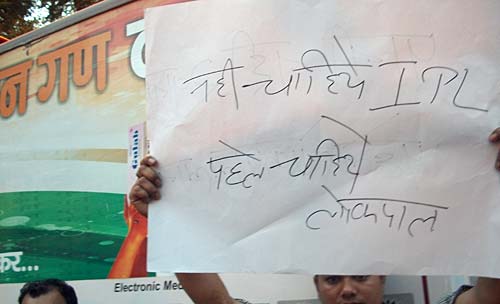 न गण
Gulab
नही चाहिये IPL
पहेले चाहिये
लोकपाल
कर...
Electronic Me